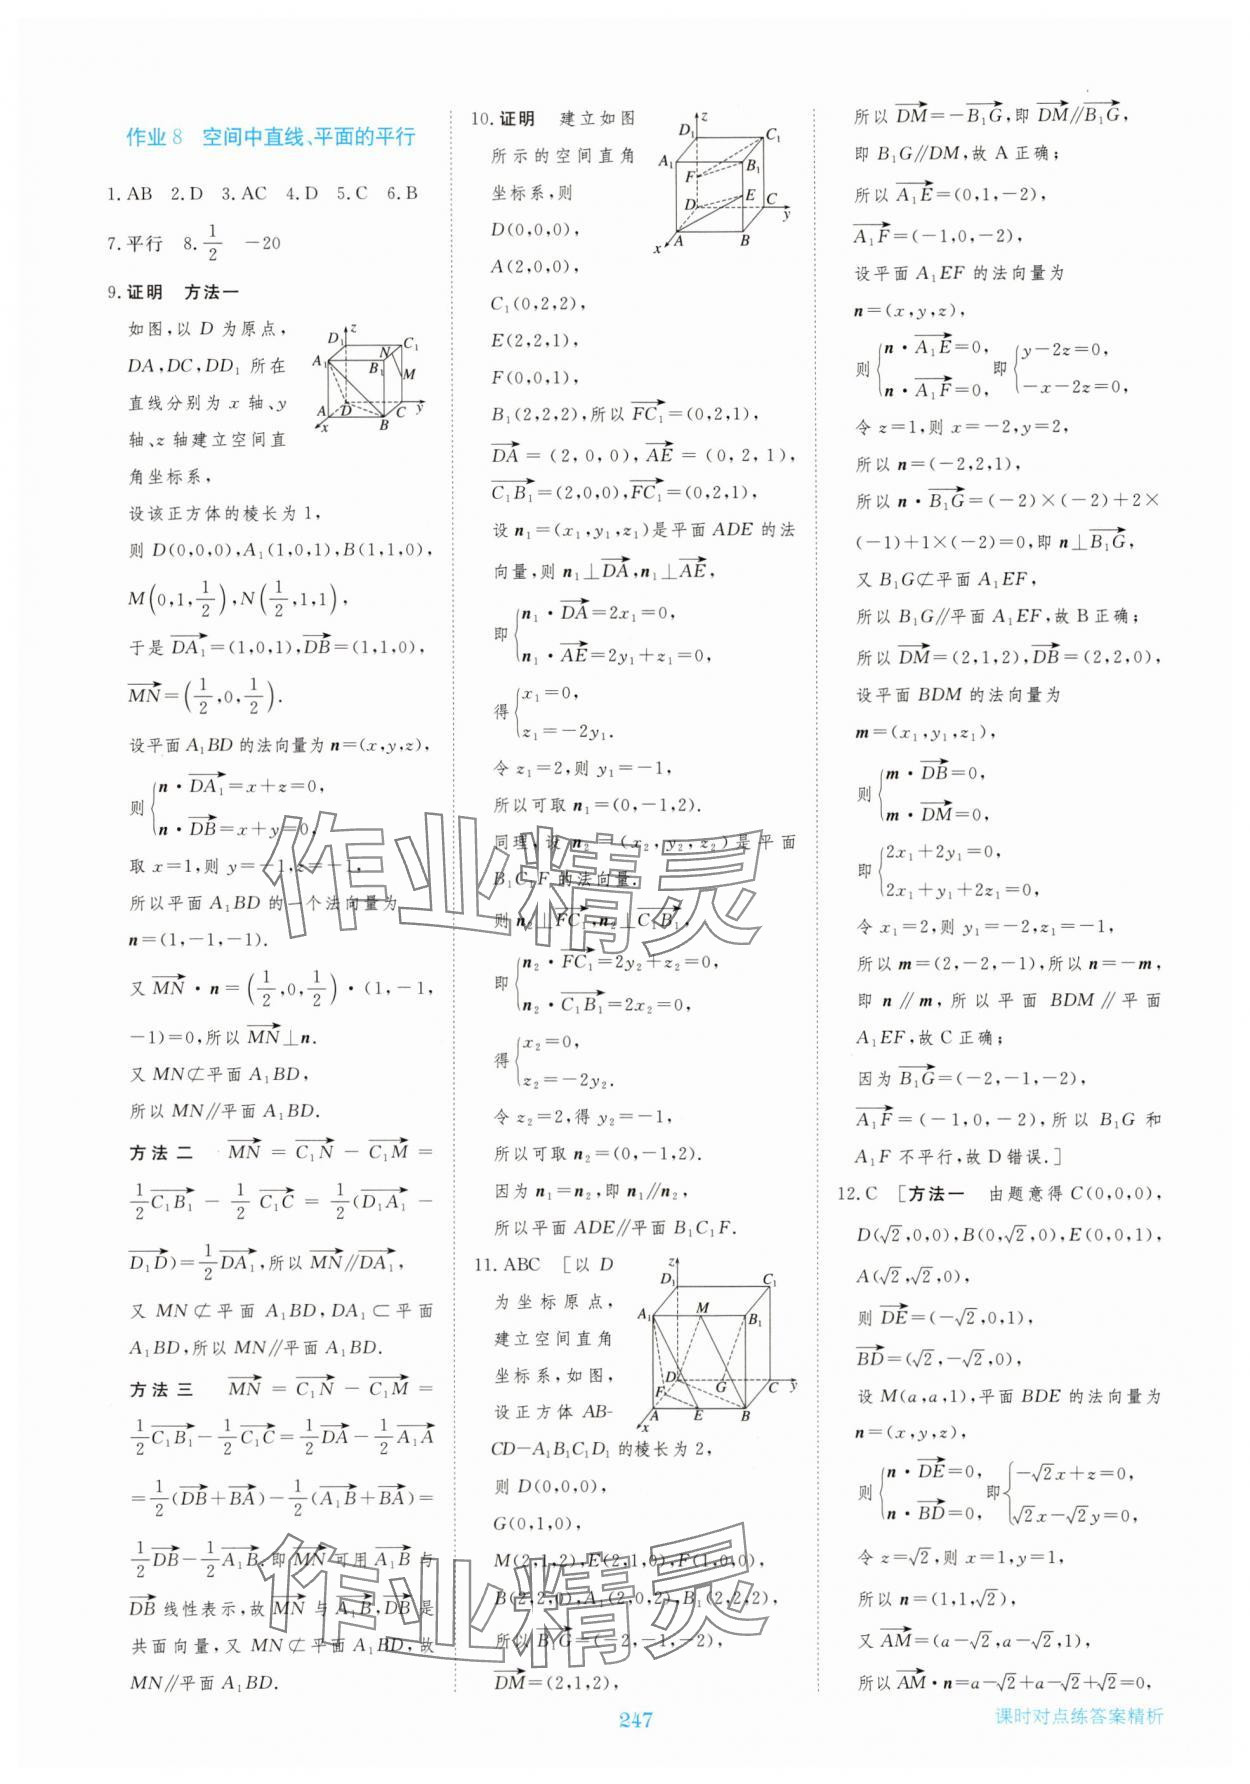 作业8 空间中直线、平面的平行
1.AB 2.D 3.AC 4.D 5.C 6.B
7.平行 8.1/2 -20
9.证明 方法一
如图,以 D 为原点,
DA,DC,DD₁ 所在
直线分别为 x 轴、y
轴、z 轴建立空间直
角坐标系,
设该正方体的棱长为1,
则 D(0,0,0),A₁(1,0,1),B(1,1,0),
M(0,1,1/2),N(1/2,1,1),
于是 DA₁→=(1,0,1),DB→=(1,1,0),
MN→=(1/2,0,1/2).
设平面 A₁BD 的法向量为 n=(x,y,z),
则{n·DA₁→=x+z=0,
n·DB→=x+y=0,
取 x=1,则 y=-1,z=-1,
所以平面 A₁BD 的一个法向量为
n=(1,-1,-1).
又 MN→·n=(1/2,0,1/2)·(1,-1,
-1)=0,所以 MN→⊥n.
又 MN⊄平面 A₁BD,
所以 MN∥平面 A₁BD.
方法二 MN→=C₁N→-C₁M→=
1/2C₁B₁→-1/2C₁C→=1/2(D₁A₁→-
D₁D→)=1/2DA₁→,所以 MN→∥DA₁→,
又 MN⊄平面 A₁BD,DA₁⊂平面
A₁BD,所以 MN∥平面 A₁BD.
方法三 MN→=C₁N→-C₁M→=
1/2C₁B₁→-1/2C₁C→=1/2DA→-1/2A₁A→
=1/2(DB→+BA→)-1/2(A₁B→+BA→)=
1/2DB→-1/2A₁B→.即 MN→可用 A₁B→与
DB→线性表示,故 MN→与 A₁B→,DB→是
共面向量,又 MN⊄平面 A₁BD,故
MN∥平面 A₁BD.
D₁ z C₁
N
A₁ B₁ M
A D C y
x B
10.证明 建立如图
所示的空间直角
坐标系,则
D(0,0,0),
A(2,0,0),
C₁(0,2,2),
E(2,2,1),
F(0,0,1),
B₁(2,2,2),所以 FC₁→=(0,2,1),
DA→=(2,0,0),AE→=(0,2,1),
C₁B₁→=(2,0,0),FC₁→=(0,2,1),
设 n₁=(x₁,y₁,z₁)是平面 ADE 的法
向量,则 n₁⊥DA→,n₁⊥AE→,
即{n₁·DA→=2x₁=0,
n₁·AE→=2y₁+z₁=0,
得{x₁=0,
z₁=-2y₁.
令 z₁=2,则 y₁=-1,
所以可取 n₁=(0,-1,2).
同理,设 n₂=(x₂,y₂,z₂)是平面
B₁C₁F 的法向量.
则 n₂⊥FC₁→,n₂⊥C₁B₁→,
即{n₂·FC₁→=2y₂+z₂=0,
n₂·C₁B₁→=2x₂=0,
得{x₂=0,
z₂=-2y₂.
令 z₂=2,得 y₂=-1,
所以可取 n₂=(0,-1,2).
因为 n₁=n₂,即 n₁∥n₂,
所以平面 ADE∥平面 B₁C₁F.
z
D₁ C₁
A₁ B₁
F E
D C y
A B
x
11.ABC [以 D
为坐标原点,
建立空间直角
坐标系,如图,
设正方体 AB-
CD-A₁B₁C₁D₁ 的棱长为2,
则 D(0,0,0),
G(0,1,0),
M(2,1,2),E(2,1,0),F(1,0,0),
B(2,2,0),A₁(2,0,2),B₁(2,2,2),
所以 B₁G→=(-2,-1,-2),
DM→=(2,1,2),
z
D₁ C₁
A₁ M B₁
D G C y
F
A E B
x
所以 DM→=-B₁G→,即 DM→∥B₁G→,
即 B₁G∥DM,故 A 正确;
所以 A₁E→=(0,1,-2),
A₁F→=(-1,0,-2),
设平面 A₁EF 的法向量为
n=(x,y,z),
则{n·A₁E→=0, 即{y-2z=0,
n·A₁F→=0, -x-2z=0,
令 z=1,则 x=-2,y=2,
所以 n=(-2,2,1),
所以 n·B₁G→=(-2)×(-2)+2×
(-1)+1×(-2)=0,即 n⊥B₁G→,
又 B₁G⊄平面 A₁EF,
所以 B₁G∥平面 A₁EF,故 B 正确;
所以 DM→=(2,1,2),DB→=(2,2,0),
设平面 BDM 的法向量为
m=(x₁,y₁,z₁),
则{m·DB→=0,
m·DM→=0,
即{2x₁+2y₁=0,
2x₁+y₁+2z₁=0,
令 x₁=2,则 y₁=-2,z₁=-1,
所以 m=(2,-2,-1),所以 n=-m,
即 n∥m,所以平面 BDM∥平面
A₁EF,故 C 正确;
因为 B₁G→=(-2,-1,-2),
A₁F→=(-1,0,-2),所以 B₁G 和
A₁F 不平行,故 D 错误.]
12.C [方法一 由题意得 C(0,0,0),
D(√2,0,0),B(0,√2,0),E(0,0,1),
A(√2,√2,0),
则 DE→=(-√2,0,1),
BD→=(√2,-√2,0),
设 M(a,a,1),平面 BDE 的法向量为
n=(x,y,z),
则{n·DE→=0, 即{-√2x+z=0,
n·BD→=0, √2x-√2y=0,
令 z=√2,则 x=1,y=1,
所以 n=(1,1,√2),
又 AM→=(a-√2,a-√2,1),
所以 AM→·n=a-√2+a-√2+√2=0,
247
课时对点练答案精析
作业精灵
作业精灵